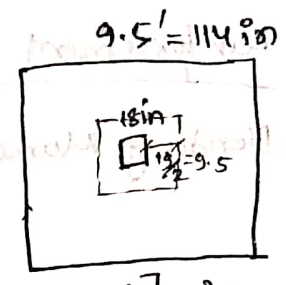 9.5' = 114 in
18in
19/2 = 9.5